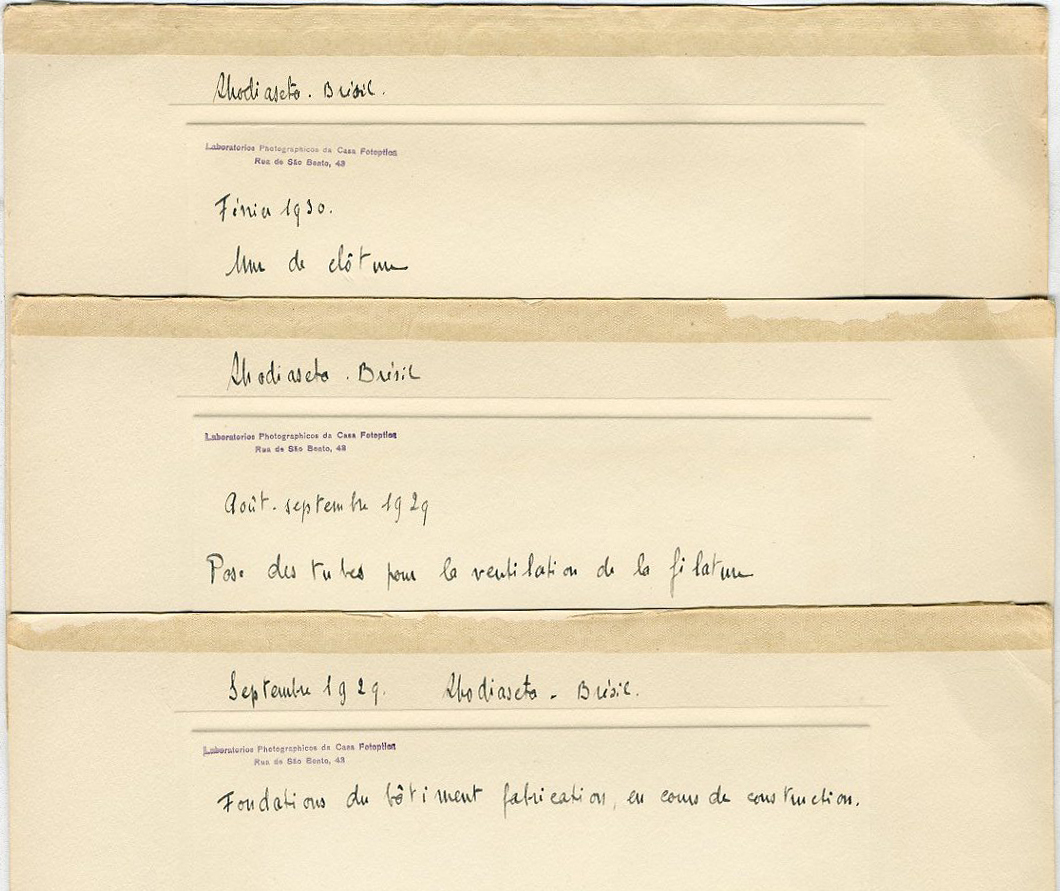 Rhodiaseta. Brésil.
Laboratorios Photographicos da Casa Fotoptica
Rua de São Bento, 43
Février 1930.
Mur de clôture
Rhodiaseta. Brésil
Laboratorios Photographicos da Casa Fotoptica
Rua de São Bento, 43
Août-septembre 1929
Pose des tubes pour la ventilation de la filature
Septembre 1929. Rhodiaseta - Brésil.
Laboratorios Photographicos da Casa Fotoptica
Rua de São Bento, 43
Fondations du bâtiment fabrication, en cours de construction.